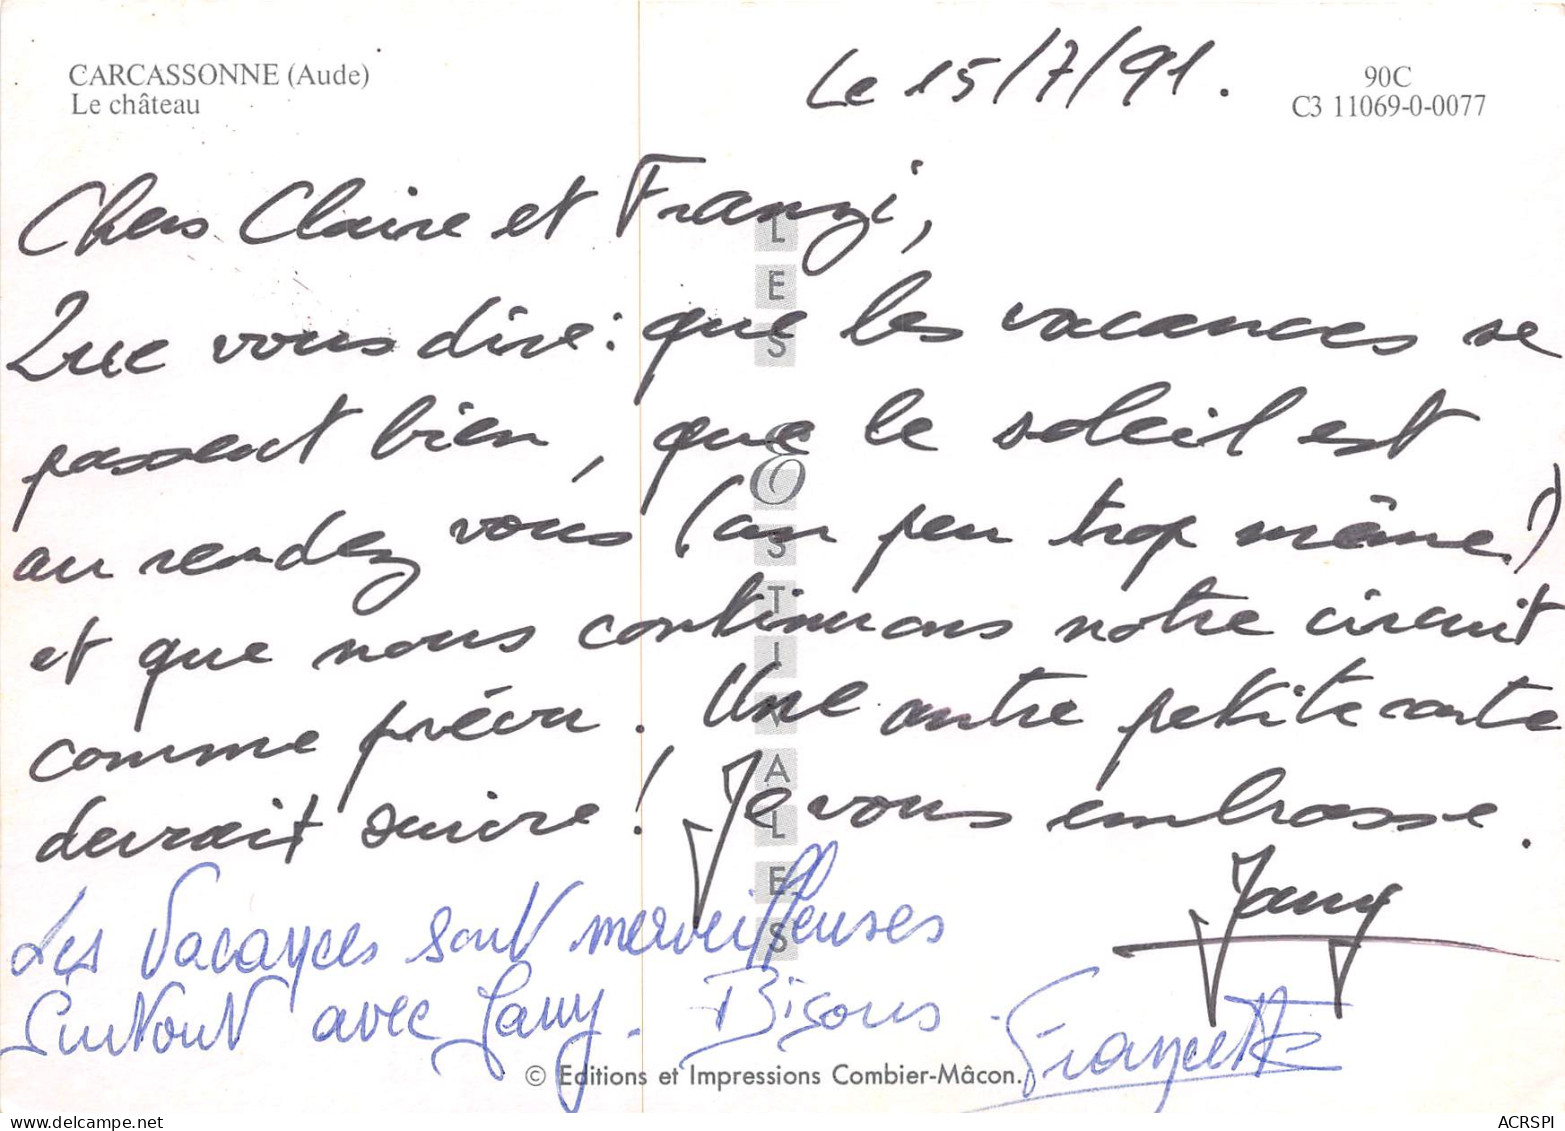 CARCASSONNE (Aude)
Le château
Le 15/7/91.
90C
C3 11069-0-0077
Chers Claire et Franzi,
Que vous dire : que les vacances se
passent bien, que le soleil est
au rendez vous (un peu trop même!)
et que nous continuons notre circuit
comme prévu. Une autre petite carte
devrait suivre! Je vous embrasse.
Jany
Les Vacances sont merveilleuses
Surtout avec Jany. Bisous.
Francette
LES ESTIVALES
© Editions et Impressions Combier-Mâcon.
delcampe.net
ACRSPI